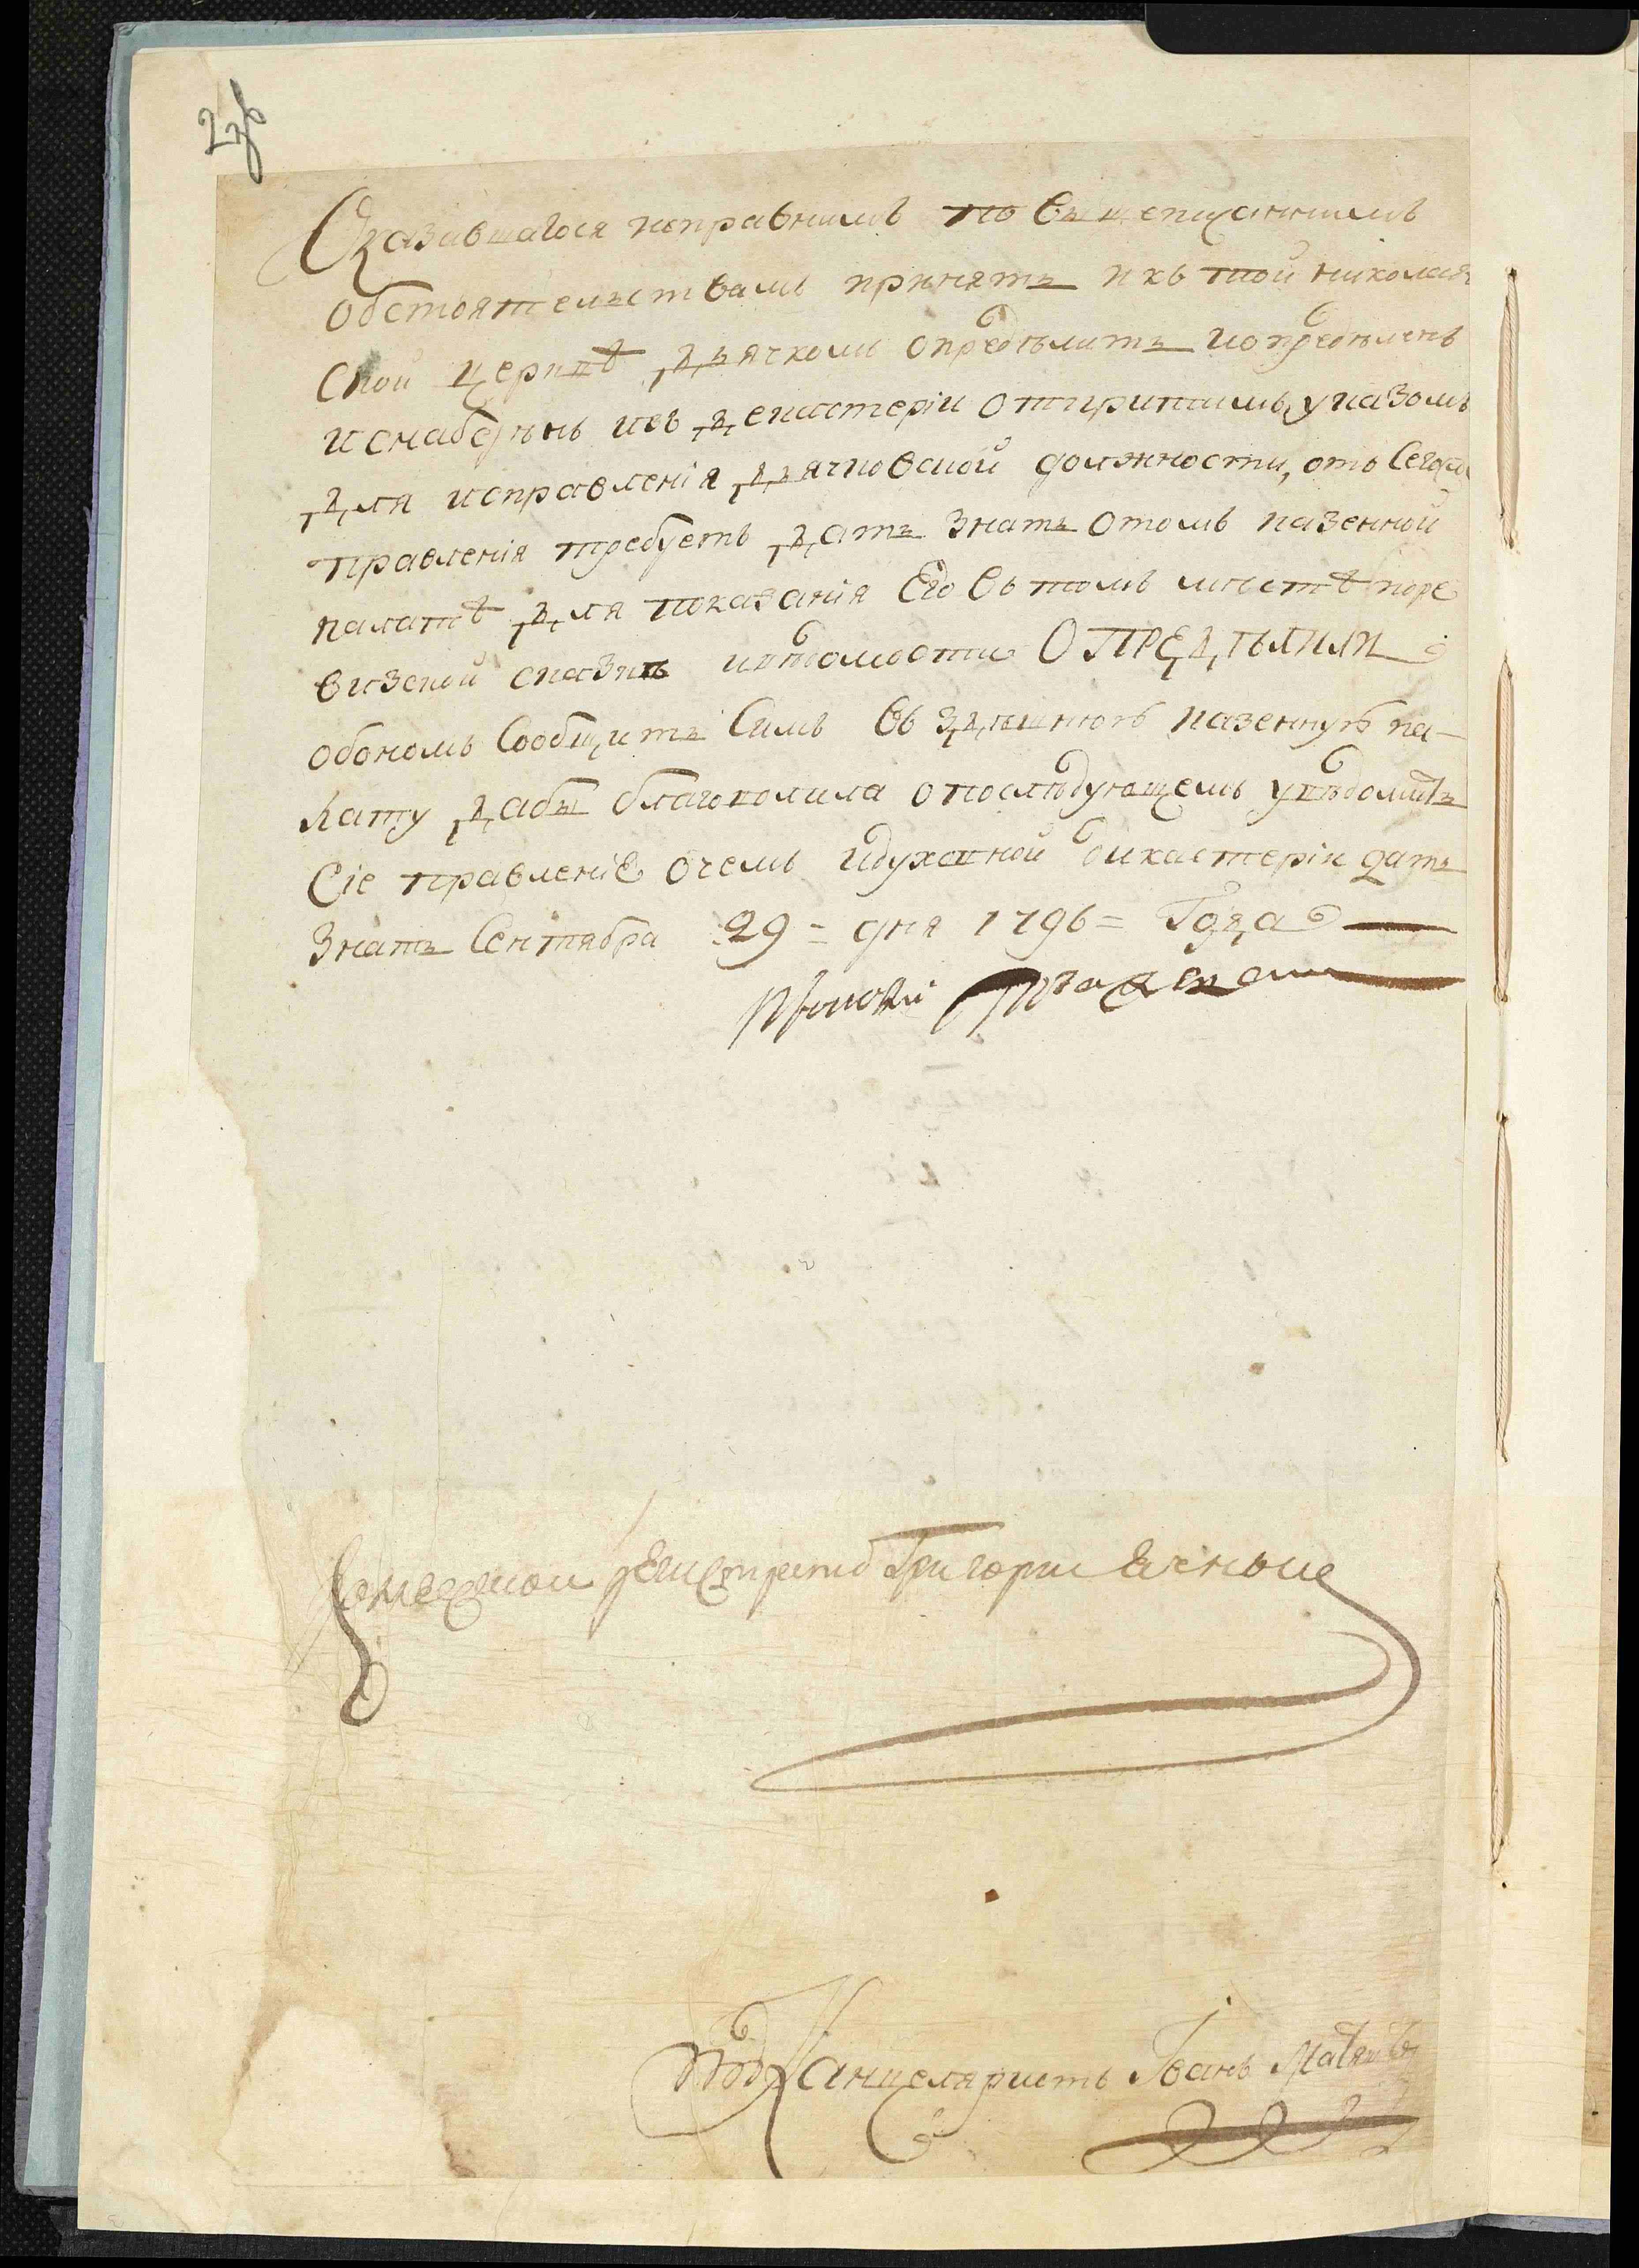 Оказавшагося исправнымъ по вышеписаннымъ
обстоятельствамъ принять и къ той николаев
ской церкпѣ дьячкомъ опредѣлить и опредѣленъ
и снабдѣнъ изъ дикастеріи открытымъ указомъ
для исправленія дьячковской должности, отъ Сего
правленія требуетъ дать знать отомъ казенной
палатѣ для показанія Его Въ томъ мѣстѣ поре
визской сказкѣ и вѣдомости ОПРЕДѢЛИЛИ
обономъ Сообщить Симъ Въ здѣшнюю казенную па-
лату дабы благоволила опослѣдующемъ увѣдомить
Сіе правленіе очемъ и духовной дикастеріи дать
знать Сентября 29 = дня 1796 = Года
Григорий
Подканцеляристъ Іванъ